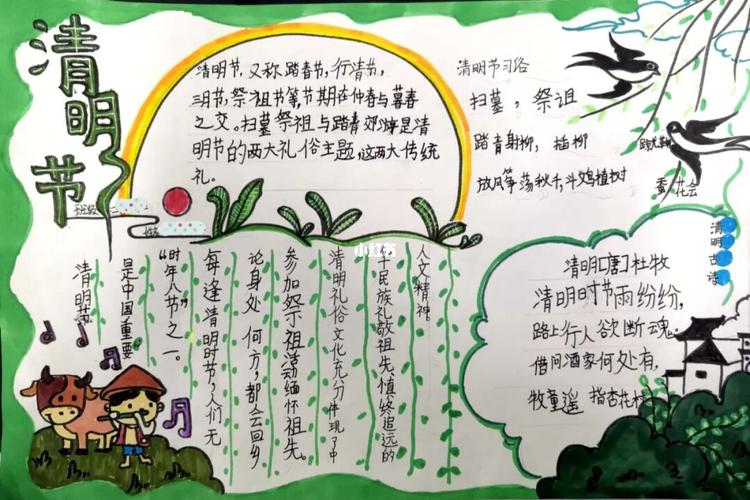 清明节
清明节,又称踏春节,行清节,
三月节,祭祖节等,节期在仲春与暮春
之交。扫墓祭祖与踏青郊游是清
明节的两大礼俗主题,这两大传统
礼。
班级
姓名
清明节习俗
扫墓,祭诅
踏青射柳,插柳
放风筝荡秋千,斗鸡植树
蚕花会
清明节
是中国重要
“时年八节”之一。
每逢清明时节,人们无
论身处何方,都会回乡
参加祭祖活动缅怀祖先。
清明礼俗文化充分体现了中
华民族礼敬祖先慎终追远的
人文精神。
小红书
清明古诗
清明[唐]杜牧
清明时节雨纷纷,
路上行人欲断魂。
借问酒家何处有,
牧童遥指杏花村